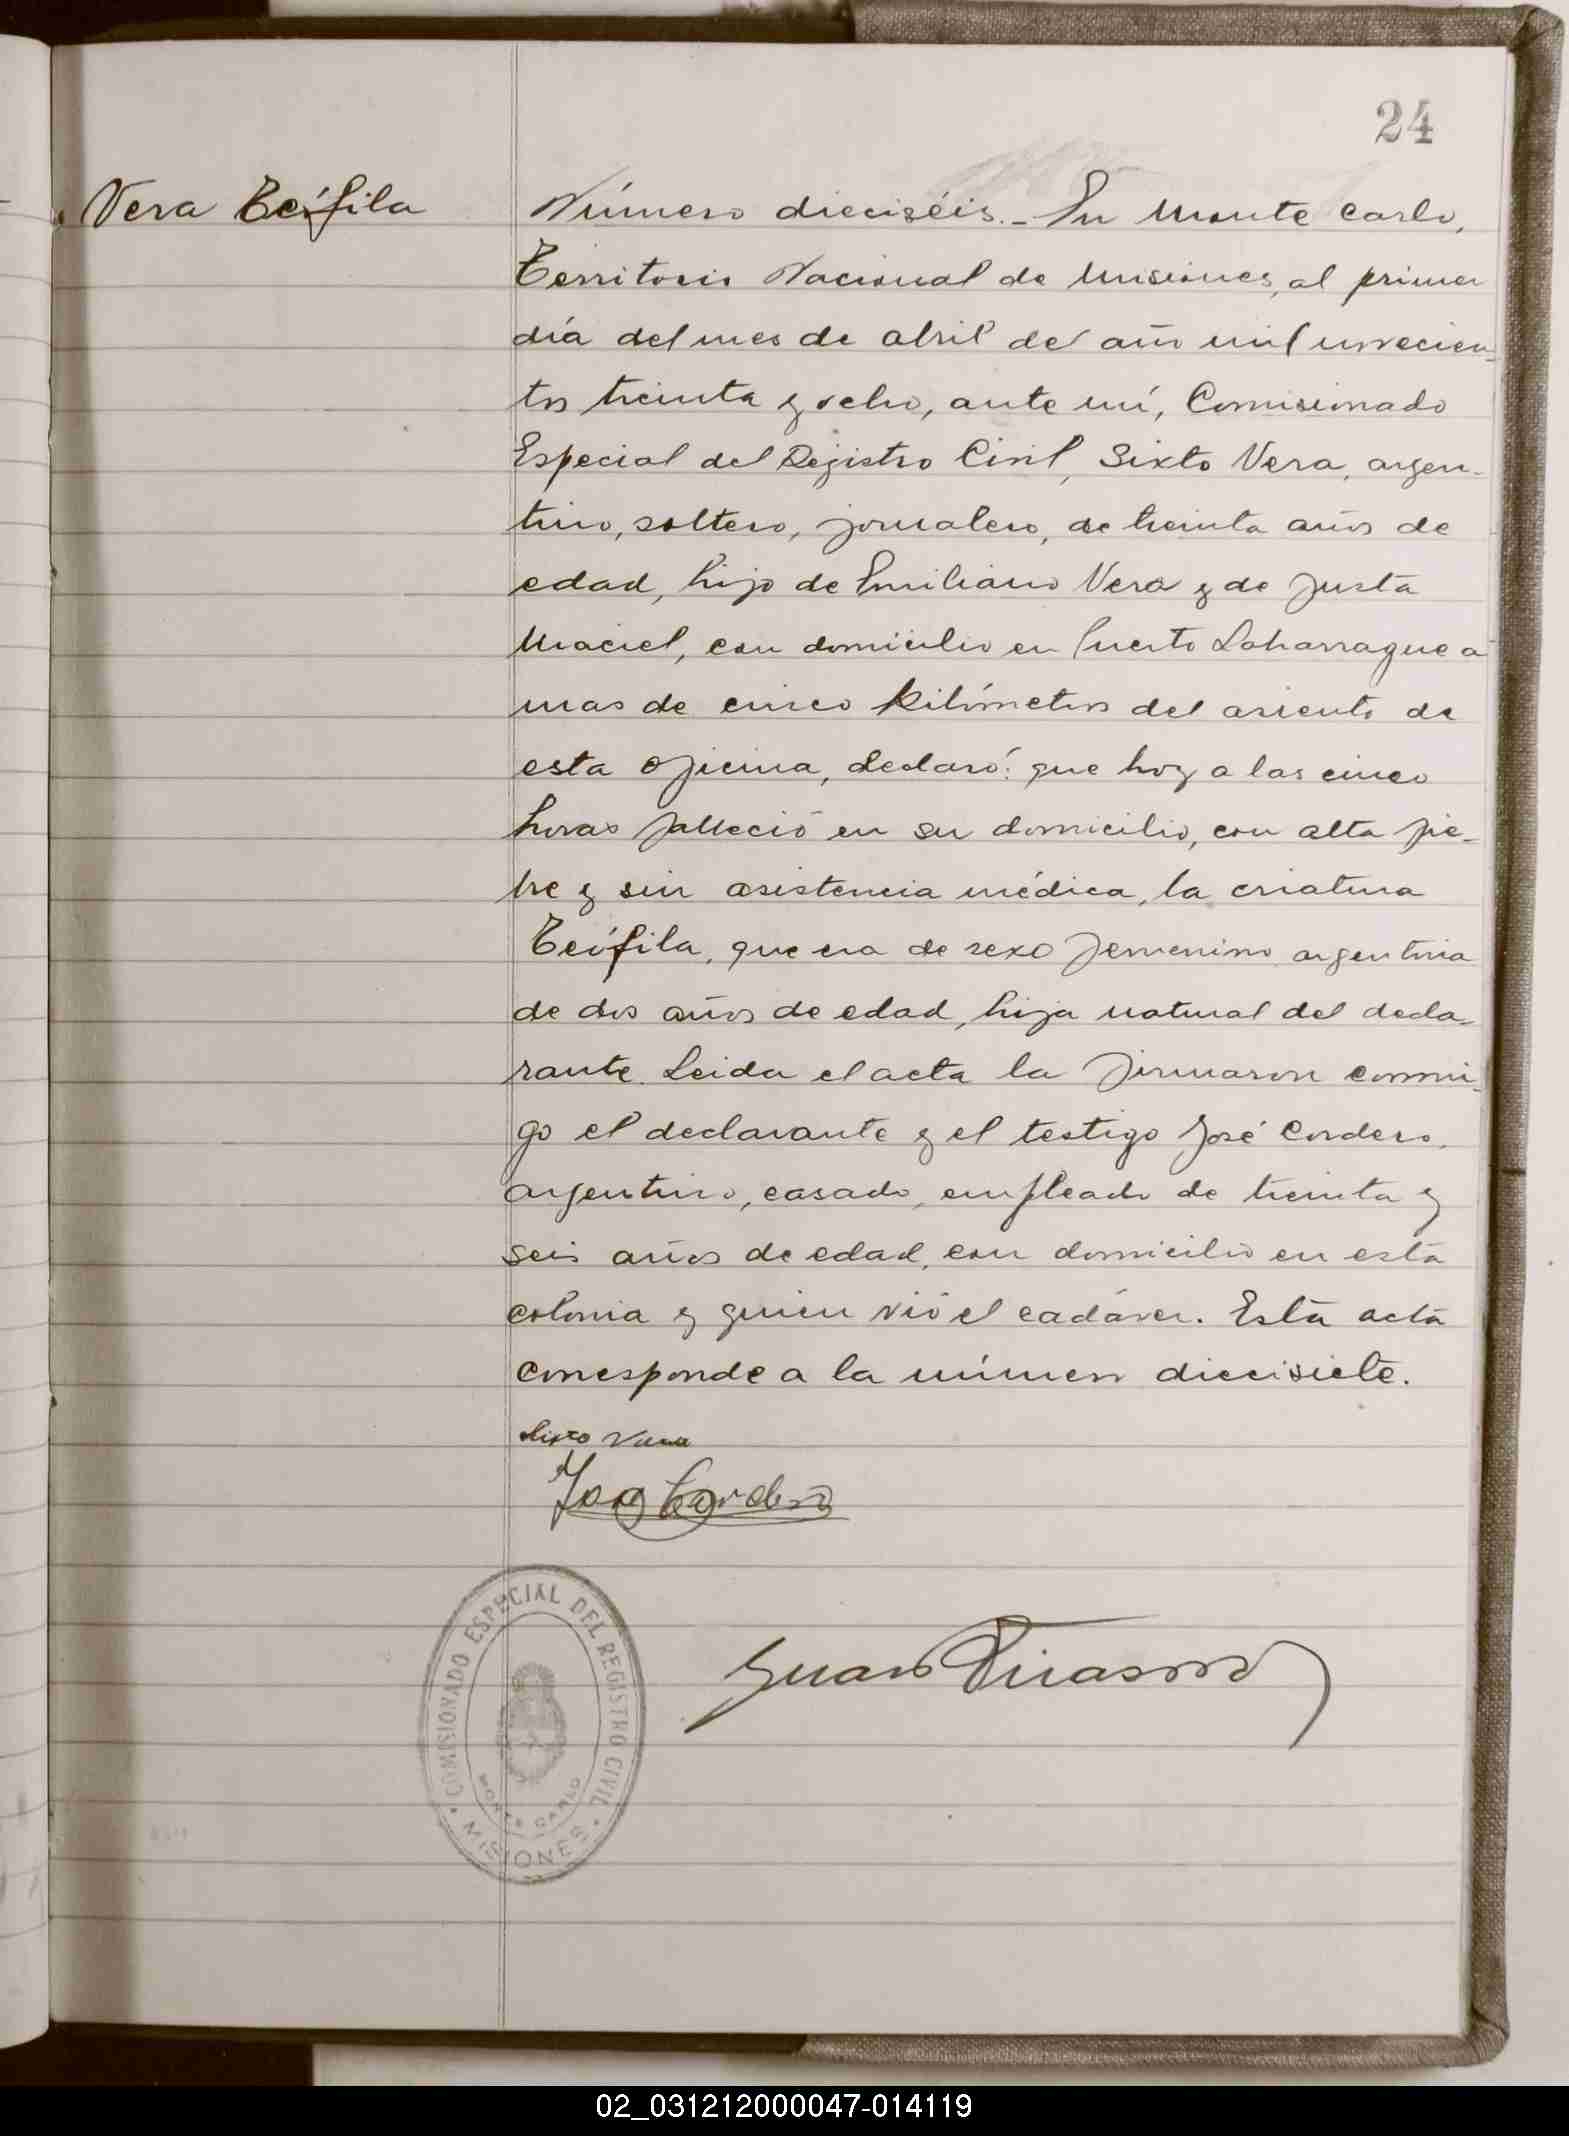 24
Vera Teófila
Número dieciséis.- En Monte Carlo,
Territorio Nacional de Misiones, al primer
día del mes de abril del año mil novecien-
tos treinta y ocho, ante mí, Comisionado
Especial del Registro Civil, Sixto Vera, argen-
tino, soltero, jornalero, de treinta años de
edad, hijo de Emiliano Vera y de Justa
Maciel, con domicilio en Puerto Laharrague a
mas de cinco kilómetros del asiento de
esta oficina, declaró: que hoy a las cinco
horas falleció en su domicilio, con alta fie-
bre y sin asistencia médica, la criatura
Teófila, que era de sexo femenino argentina
de dos años de edad, hija natural del decla-
rante. Leida el acta la firmaron conmi-
go el declarante y el testigo José Cordero,
argentino, casado, empleado de treinta y
seis años de edad, con domicilio en esta
colonia y quien vió el cadáver. Esta acta
corresponde a la número diecisiete.
Sixto Vera
José Cordero
Juan
COMISIONADO ESPECIAL DEL REGISTRO CIVIL
MONTE CARLO
MISIONES
02_031212000047-014119